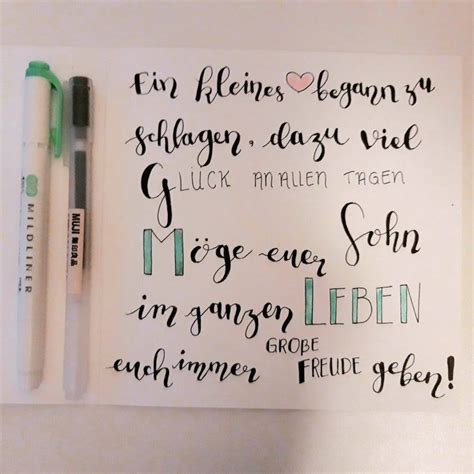 Ein kleines ♥ begann zu
schlagen, dazu viel
GLÜCK AN ALLEN TAGEN
Möge euer Sohn
im ganzen LEBEN
euch immer GROẞE FREUDE geben!
MILDLINER
MUJI 無印良品